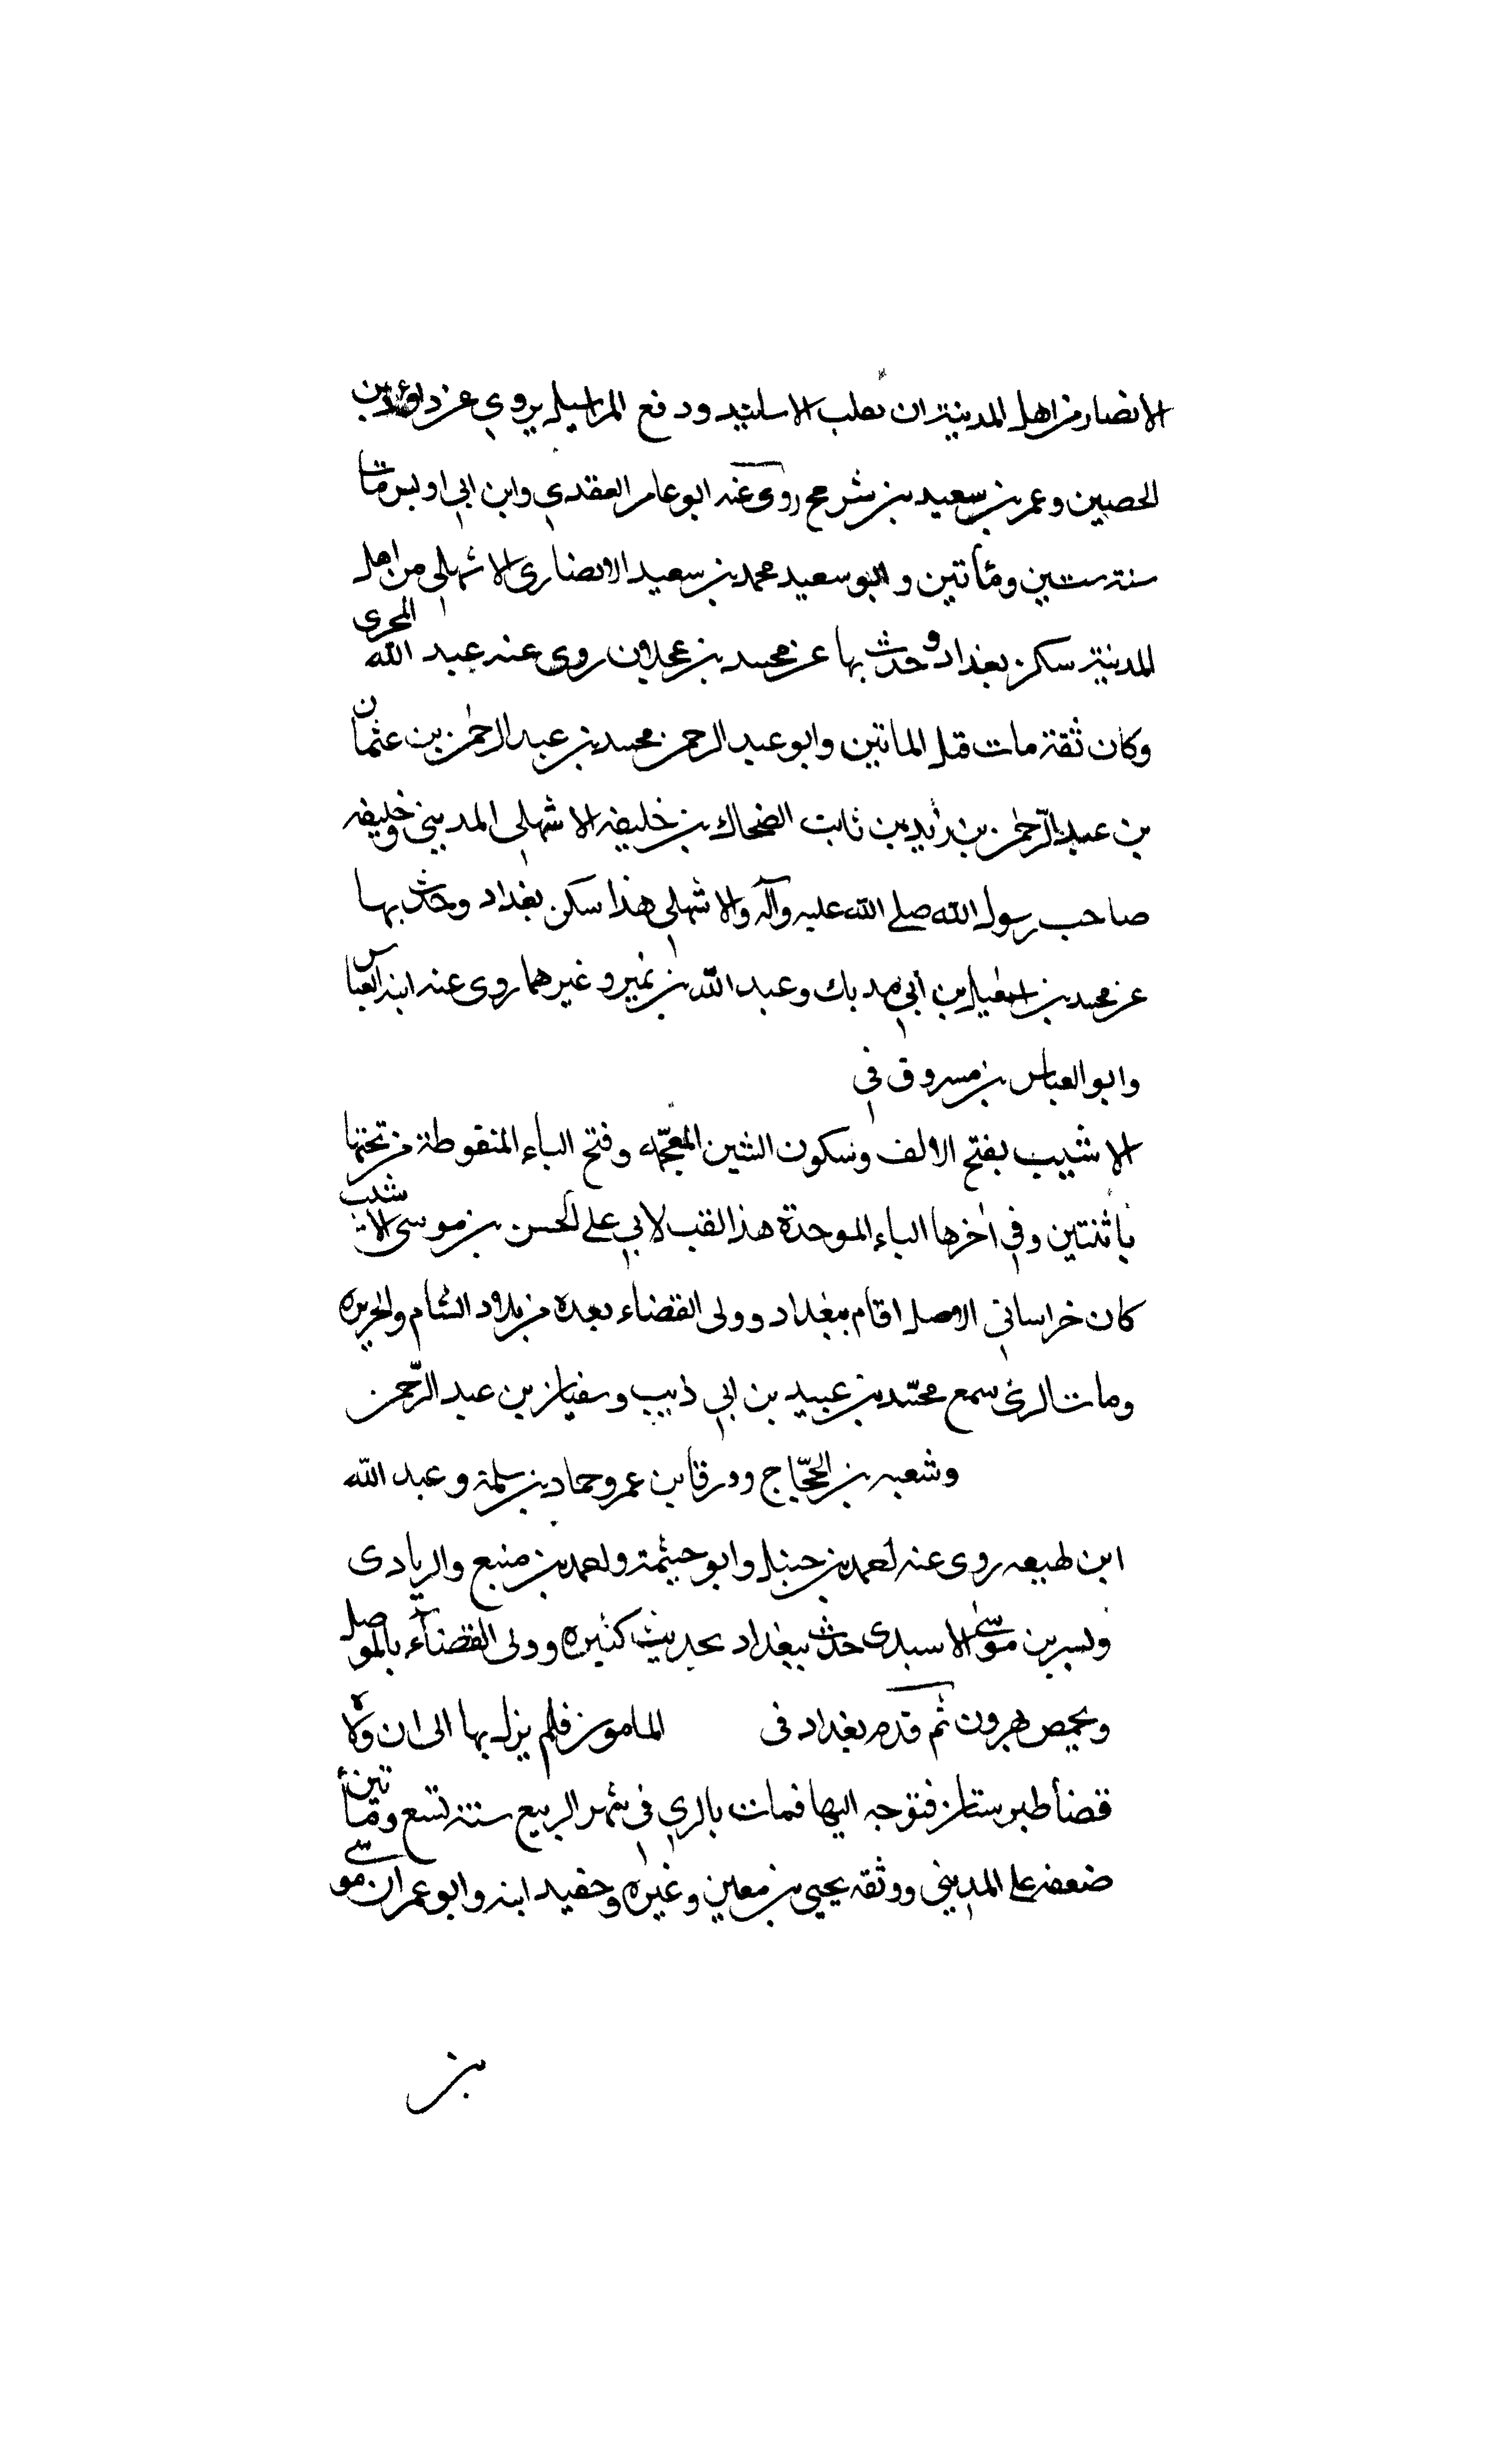 الانصار من اهل المدينة ان تقلب الاسانيد ورفع المراسيل يروى عن داؤد بن
الحصين وعمر بن سعيد بن شريح روى عنه ابو عامر العقدي وابن ابي اويس مات
سنة ستين ومأتين وابو سعيد محمد بن سعيد الانصارى الاشهلي من اهل
المدينة سكن بغداد وحدث بها عن محمد بن عجلان روى عنه عبد الله المحرى
وكان ثقة مات قبل الماتين وابو عبد الرحمن محمد بن عبد الرحمن بن عثمان
بن عبد الرحمن بن زايد بن ثابت الضحاك بن خليفه الاشهلي المديني وخليفه
صاحب رسول الله صلے الله عليه وآله والاشهلي هذا سكن بغداد وحدث بها
عن محمد بن اسمعيل بن أبي فديك وعبد الله بن نمير وغيرهما روى عنه ابنه العباس
وابو العباس بن مسروق في
الاشيب بفتح الالف وسكون الشين المعجمه وفتح الباء المنقوطة من تحتها
باثنتين وفي اخرها الباء الموحدة هذا لقب لابي على الحسن بن موسى الاشيب
كان خراساني الاصل اقام ببغداد وولى القضاء بعدة من بلاد الشام والجزيره
ومات الرى سمع محمد بن عبيد بن ابي ذيب وسفيان بن عبد الرحمن
وشعبه بن الحجاج وورقا بن عمر وحماد بن سلمة وعبد الله
ابن لهيعه روى عنه احمد بن حنبل وابو حيثمة واحمد بن منيع والزيادى
وبسر بن موسى الاسيدى حدث ببغداد بحديث كثيره وولى القضاء بالموصل
وبحمص لهرون ثم قدم بغداد فى المامون فلم يزل بها الى ان ولاه
قضأ طبرستان فتوجه اليها فمات بالري فى شهر الربيع سنة تسع ومأتين
ضعفه على المديني ووثقه يحيى بن معين وغيره وحفيد ابنه وابو عمران موسى
بن